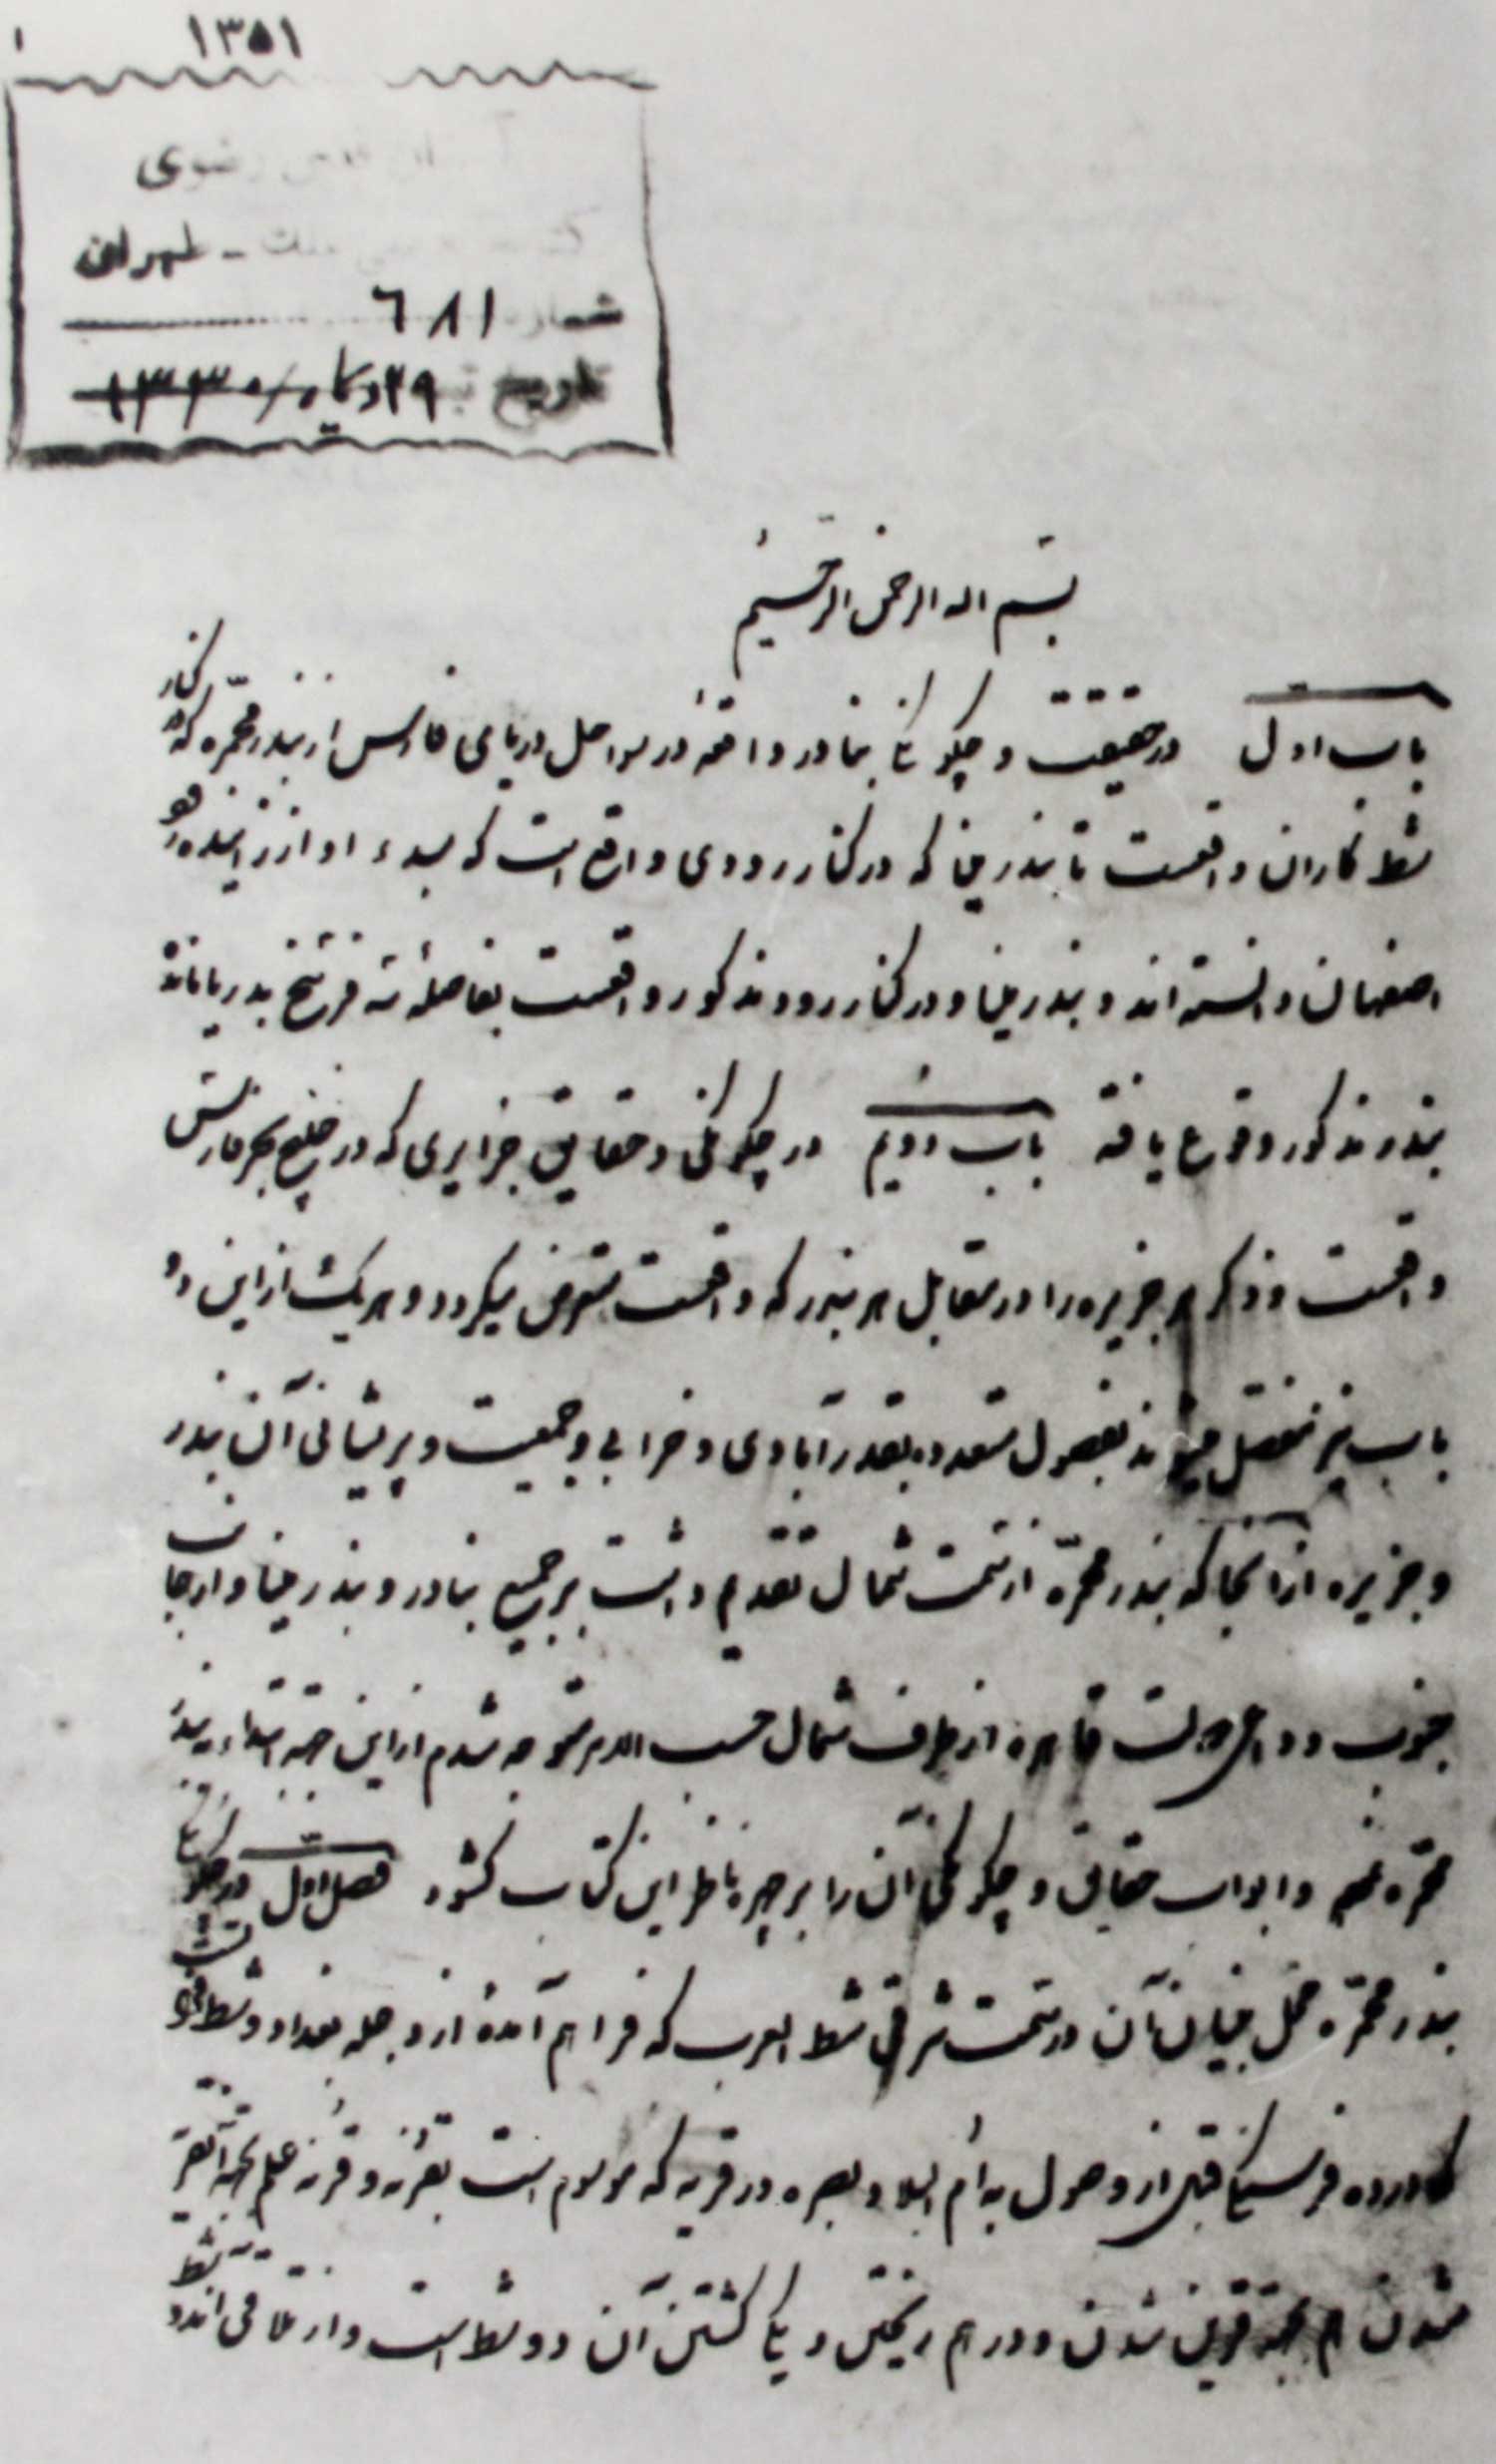 ۱۳۵۱
۱
طهران
شماره ٦٨١
تاریخ ۲۹ دیماه ۱۳۳۰
بسم اله الرحمن الرحیم
باب اول در حقیقت و چگونگی بنادر واقعه در سواحل دریای فارس از بندر محمّره که در کنار
شط کاران واقعست تا بندر مینا که در کنار رودی واقع است که مبدء او از زاینده رود
اصفهان دانسته اند و بندر مینا و در کنار رود مذکور واقعست بفاصلهٔ سه فرسخ بدریا مانده
بندر مذکور وقوع یافته باب دویم در چگونگی و حقایق جزایری که در خلیج بحر فارس
واقعست و ذکر هر جزیره را در مقابل هر بندر که واقعست متعرض میگردد و هر یک از این دو
باب نیز منفصل میشود بفصول متعدده بقدر آبادی و خرابی و جمعیت و پریشانی آن بندر
و جزیره از آنجا که بندر محمّره از سمت شمال تقدیم داشت بر جمیع بنادر و بندر مینا و از جانب
جنوب و داعی دولت قاهره از طرف شمال حسب الامر متوجه شدم از این جهة ابتداء ببندر
محمره نمیم و ابواب حقایق و چگونگی آن را بر چهره ناظر این کتاب گشود فصل اول در چگونگی
بندر محمّره محل بنیان آن در سمت شرقی شط العرب که فراهم آمدهٔ از دجله بغداد و شط فرات
که در ده فرسخی قبل از وصول به ام البلاد بصره در قریه که موسوم است بقرنه و قرنه علم بجهة
شدن هم بجهة قرین شدن و در هم ریختن و یکی گشتن آن دو شط است و از تلاقی اندو شط